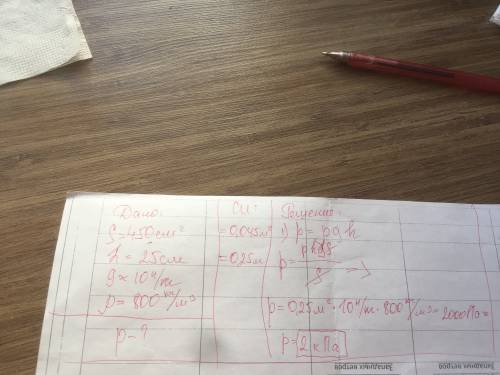 Дано:
S = 450 см²
h = 25 см
g ≈ 10 н/кг
ρ = 800 кг/м³
p - ?
СИ:
= 0,045 м²
= 0,25 м
Решение:
1) p = ρgh
p = ρhgS/S =>
p = 0,25 м² · 10 н/кг · 800 кг/м³ = 2000 Па =
p = 2 кПа
Западных ветров
Западных ветров